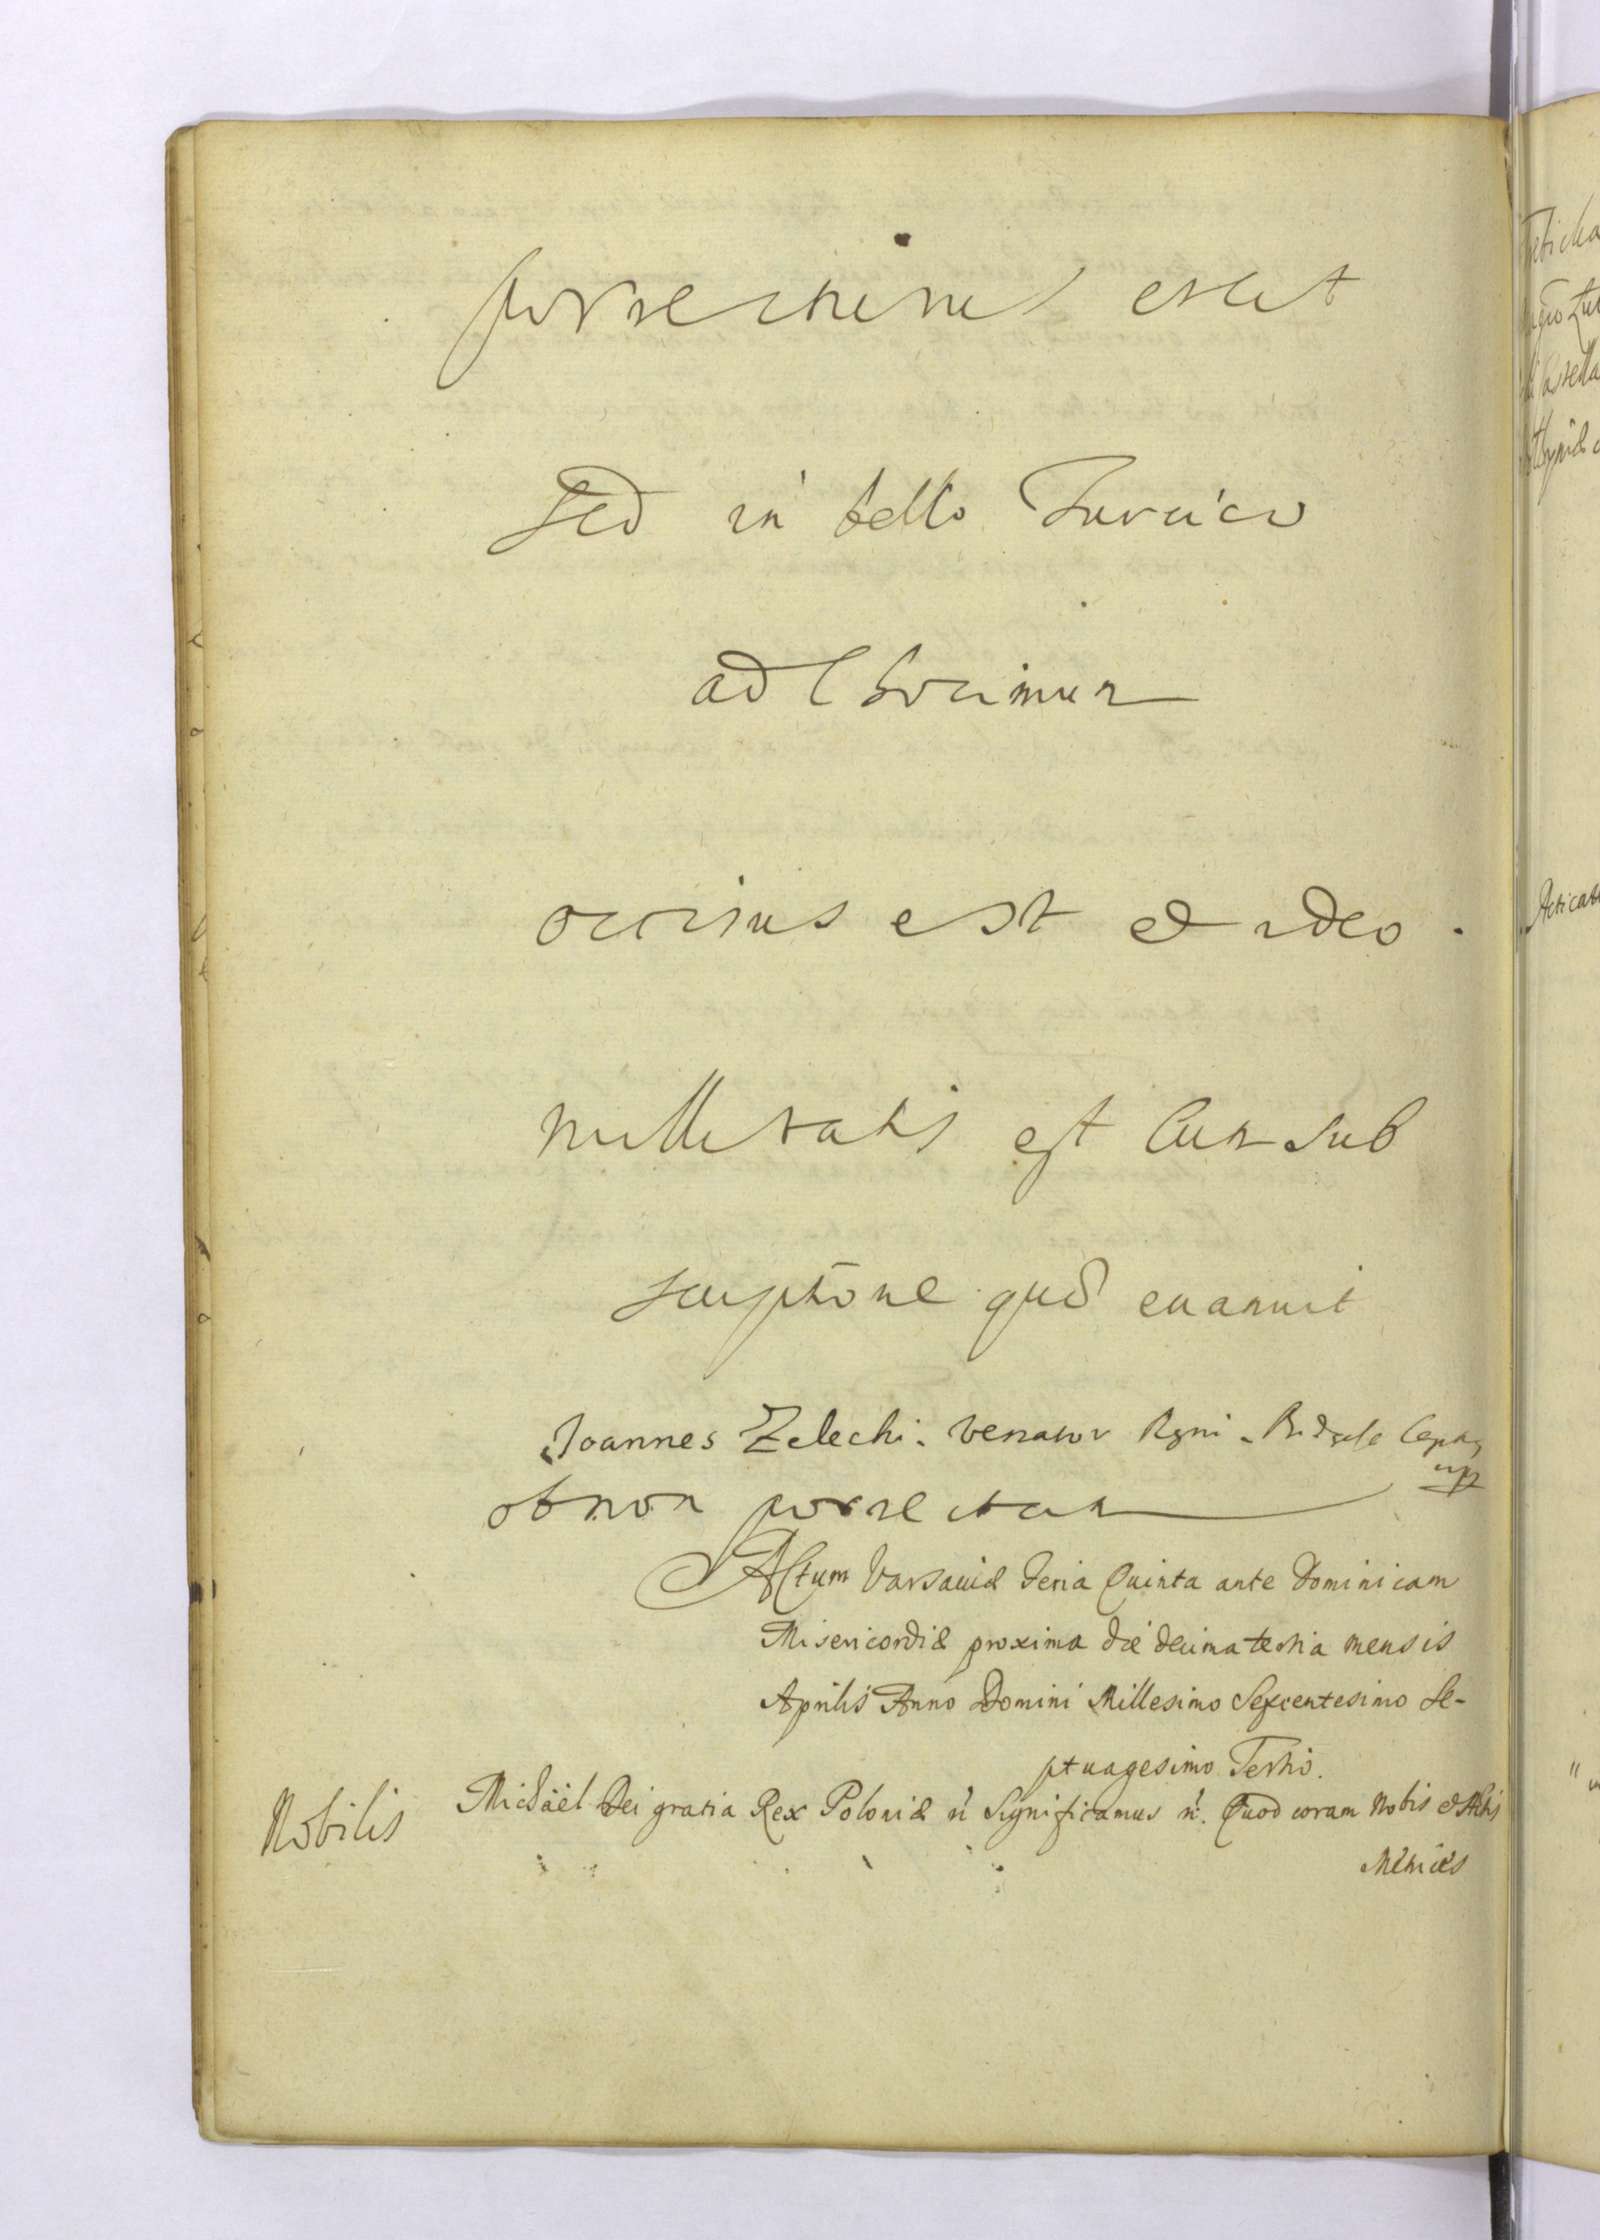 sed in bello Turcico
ad Chocimum
occisus est et ideo
nullitatis est cum sub
scriptōne quod euanuit
Joannes Zelechi. Venator Regni
ob non porrectam
Actum Varsaviæ Feria Quinta ante Dominicam
Misericordiæ proxima die decima tertia mensis
Aprilis Anno Domini Millesimo Sexcentesimo Se-
ptuagesimo Tertio.
Nobilis
Michaël Dei gratia Rex Poloniæ Significamus Quod coram Nobis et Actis